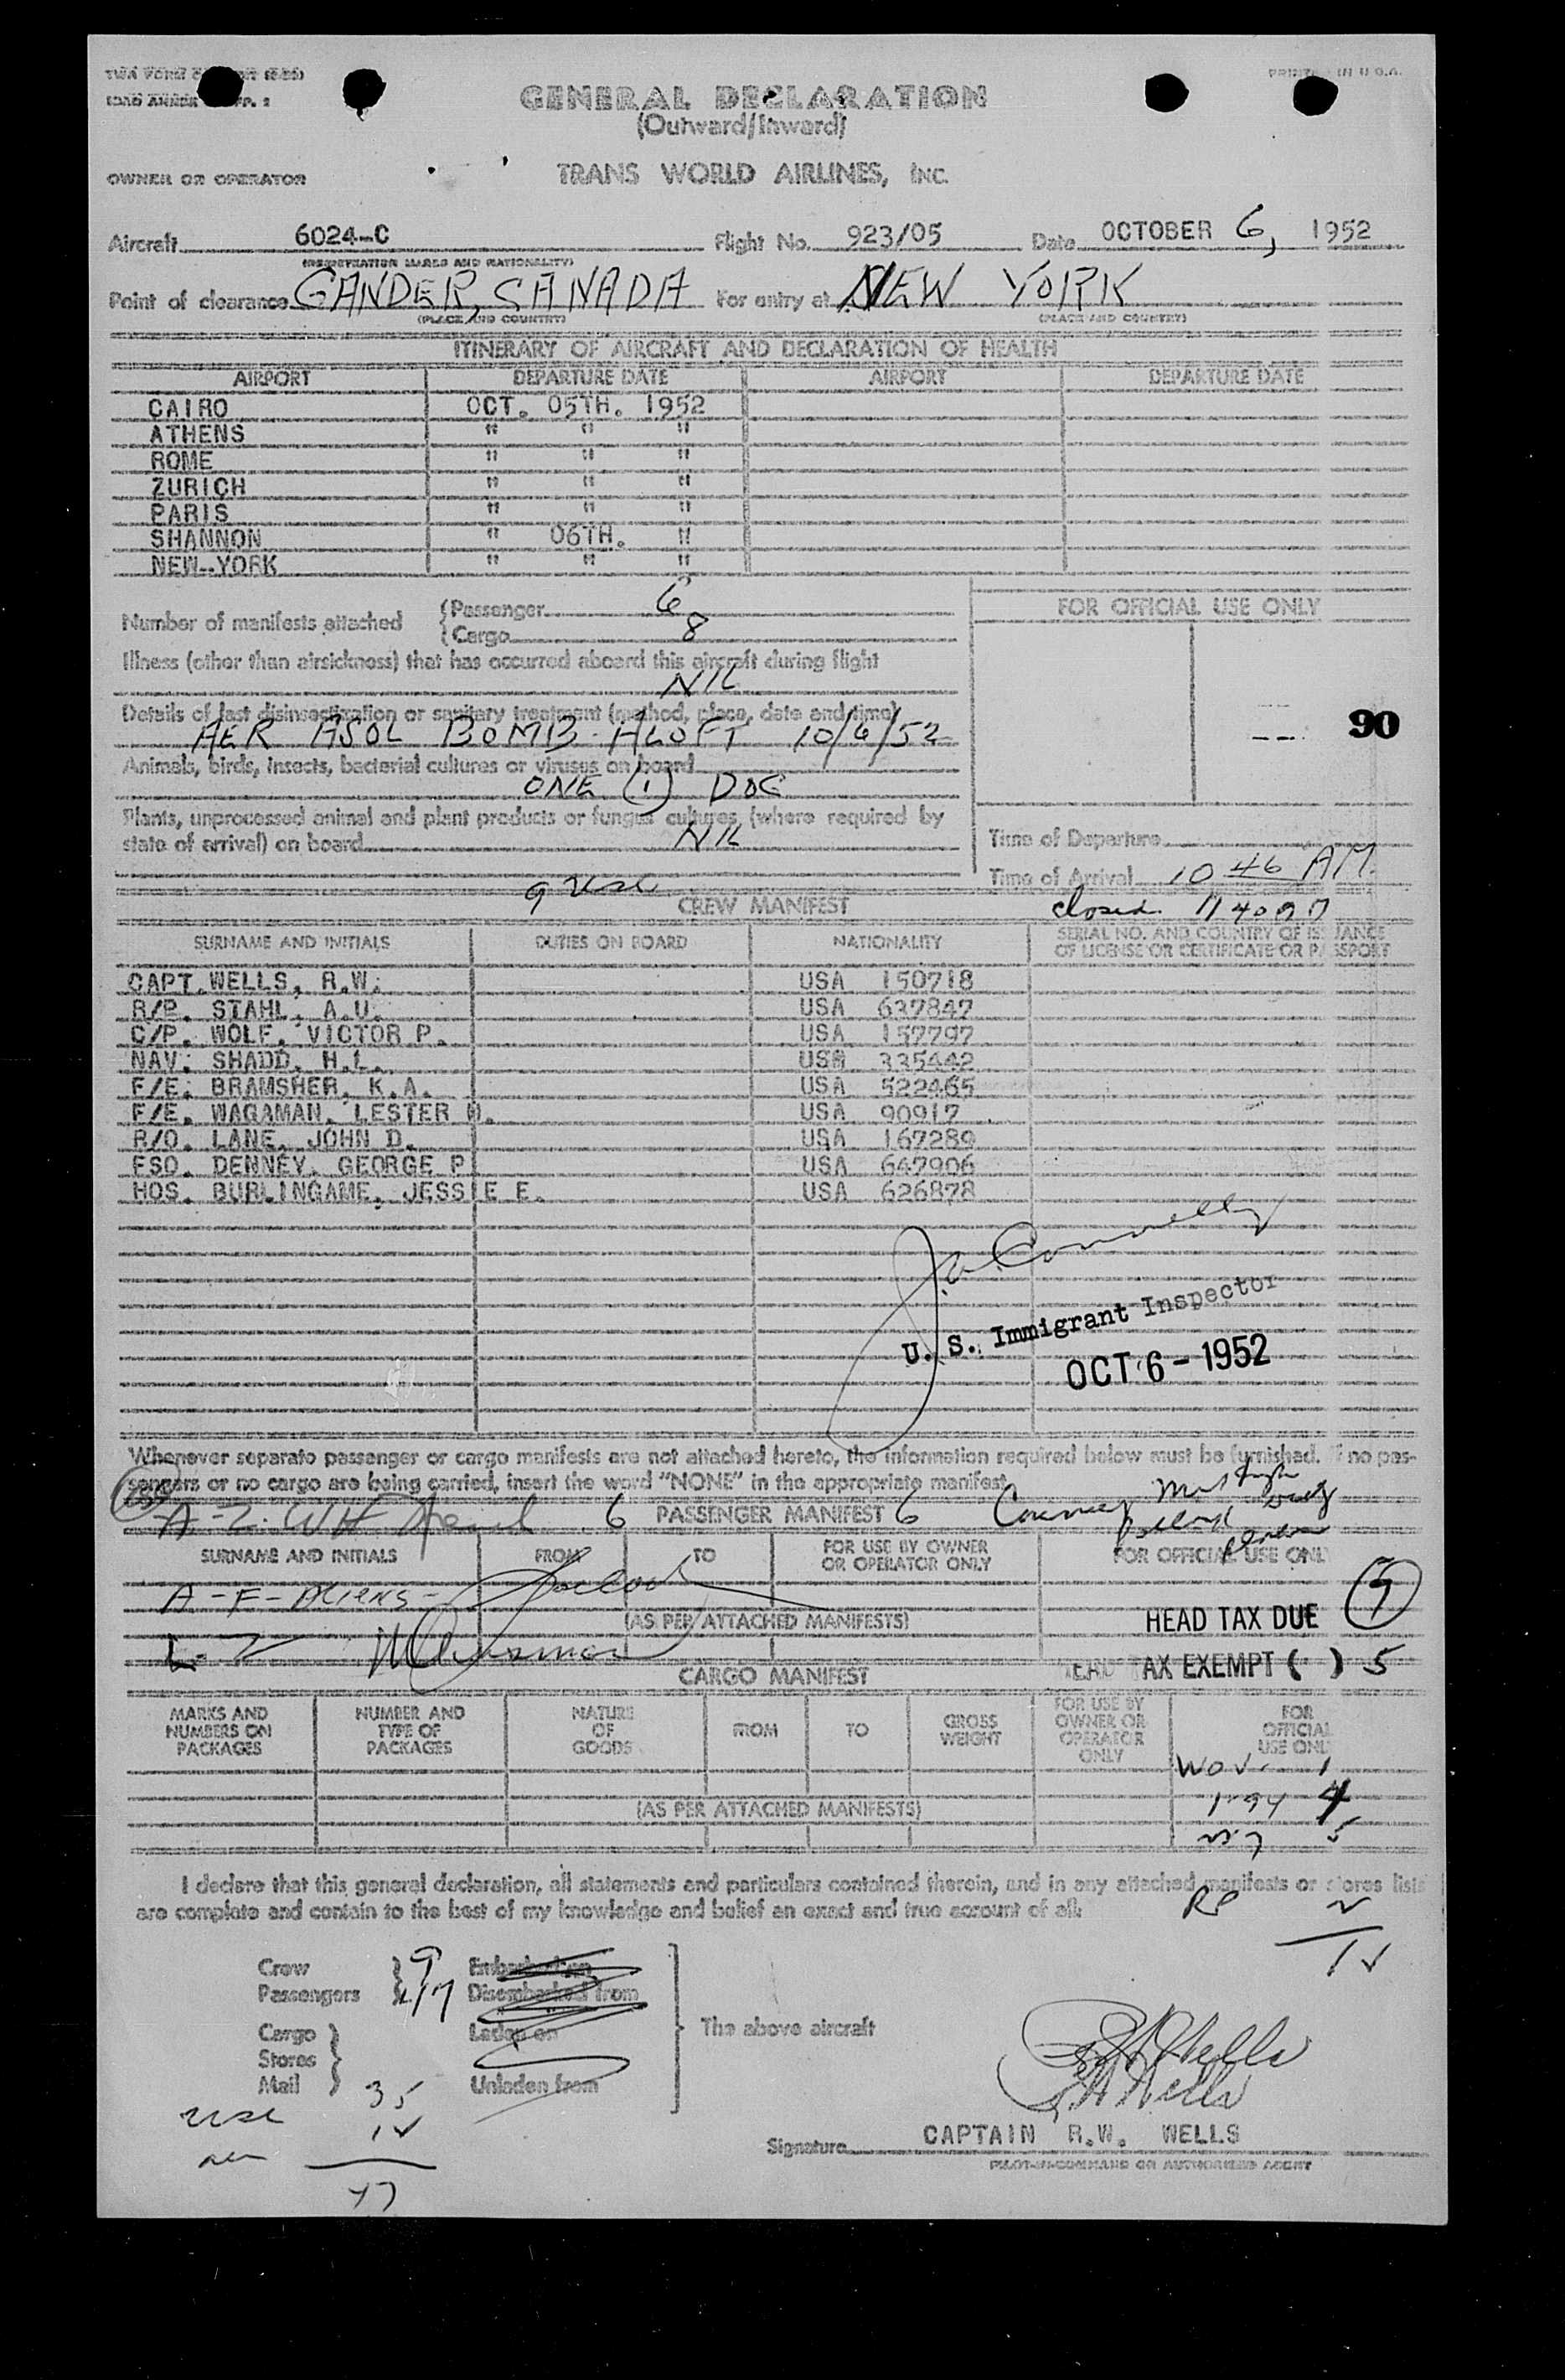 PRINTED IN U.S.A.
GENERAL DECLARATION
(Outward/Inward)
OWNER OR OPERATOR TRANS WORLD AIRLINES, INC.
Aircraft 6024-C Flight No. 923/05 Date OCTOBER 6, 1952
(REGISTRATION MARKS AND NATIONALITY)
Point of clearance GANDER, CANADA For entry at NEW YORK
(PLACE AND COUNTRY) (PLACE AND COUNTRY)
ITINERARY OF AIRCRAFT AND DECLARATION OF HEALTH
AIRPORT DEPARTURE DATE AIRPORT DEPARTURE DATE
CAIRO OCT. 05TH. 1952
ATHENS " " "
ROME " " "
ZURICH " " "
PARIS " " "
SHANNON " 06TH. "
NEW-YORK " " "
Number of manifests attached {Passenger 6
{Cargo 8
FOR OFFICIAL USE ONLY
Illness (other than airsickness) that has occurred aboard this aircraft during flight
NIL
Details of last disinsectization or sanitary treatment (method, place, date and time)
AER ASOL BOMB. ALOFT 10/6/52
90
Animals, birds, insects, bacterial cultures or viruses on board
ONE (1) DOG
Plants, unprocessed animal and plant products or fungus cultures (where required by
state of arrival) on board NIL
Time of Departure
Time of Arrival 10 46 AM
9 USC
closed
CREW MANIFEST
SURNAME AND INITIALS DUTIES ON BOARD NATIONALITY SERIAL NO. AND COUNTRY OF ISSUANCE
OF LICENSE OR CERTIFICATE OR PASSPORT
CAPT. WELLS, R.W. USA 150718
R/P. STAHL, A.U. USA 637847
C/P. WOLF, VICTOR P. USA 157797
NAV. SHADD, H.L. USA 335442
F/E. BRAMSHER, K.A. USA 522465
F/E. WAGAMAN, LESTER W. USA 90917
R/O. LANE, JOHN D. USA 167289
FSO. DENNEY, GEORGE P. USA 647906
HOS. BURLINGAME, JESSIE E. USA 626878
U. S. Immigrant Inspector
OCT 6 - 1952
Whenever separate passenger or cargo manifests are not attached hereto, the information required below must be furnished. If no pas-
sengers or no cargo are being carried, insert the word "NONE" in the appropriate manifest.
A-Z 6 PASSENGER MANIFEST 6
SURNAME AND INITIALS FROM TO FOR USE BY OWNER
OR OPERATOR ONLY FOR OFFICIAL USE ONLY
A-F-ALIENS-
(AS PER ATTACHED MANIFESTS) HEAD TAX DUE
HEAD TAX EXEMPT ( ) 5
CARGO MANIFEST
MARKS AND
NUMBERS ON
PACKAGES
NUMBER AND
TYPE OF
PACKAGES
NATURE
OF
GOODS
FROM
TO
GROSS
WEIGHT
FOR USE BY
OWNER OR
OPERATOR
ONLY
FOR
OFFICIAL
USE ONLY
1
4
(AS PER ATTACHED MANIFESTS)
I declare that this general declaration, all statements and particulars contained therein, and in any attached manifests or stores lists
are complete and contain to the best of my knowledge and belief an exact and true account of all:
Crew 9 Embarked on
Passengers Disembarked from
Cargo Laden on
Stores
Mail Unladen from
The above aircraft
RW Wells
RW Wells
35
USC
CAPTAIN R.W. WELLS
Signature
PILOT-IN-COMMAND OR AUTHORIZED AGENT